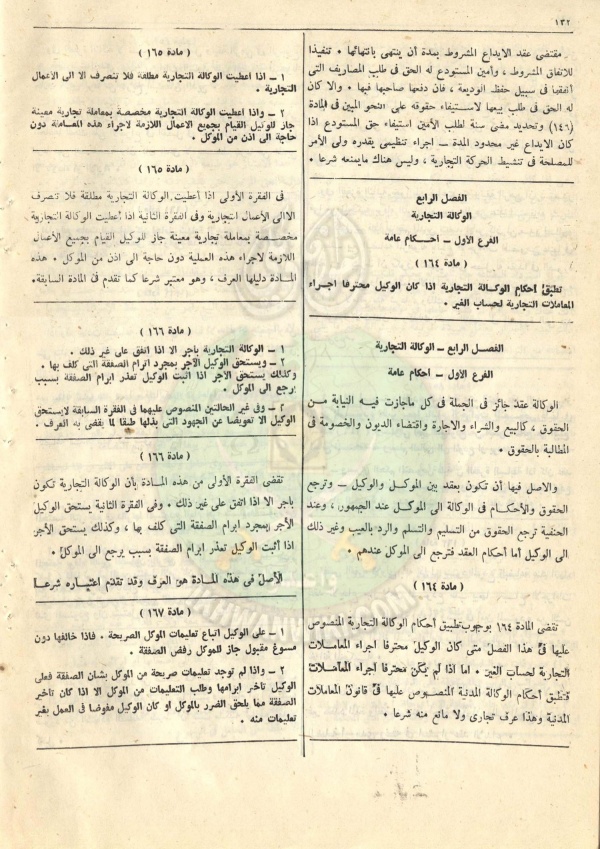 ١٣٢
مقتضى عقد الايداع المشروط بمدة أن ينتهى بانتهائها . تنفيذا
للاتفاق المشروط ، وأمين المستودع له الحق فى طلب المصاريف التى
أنفقها فى سبيل حفظ الوديعة ، فان دفعها صاحبها فيها . والا كان
له الحق فى طلب بيعها لاستيفاء حقوقه على النحو المبين فى المادة
(١٤٦) وتحديد مضى سنة لطلب الأمين استيفاء حق المستودع اذا
كان الايداع غير محدود المدة ــ اجراء تنظيمى يقدره ولى الأمر
للمصلحة فى تنشيط الحركة التجارية ، وليس هناك مايمنعه شرعا .
الفصل الرابع
الوكالة التجارية
الفرع الأول ــ أحكام عامة
( مادة ١٦٤ )
تطبق أحكام الوكالة التجارية اذا كان الوكيل محترفا اجراء
المعاملات التجارية لحساب الغير .
الفصل الرابع ــ الوكالة التجارية
الفرع الأول ــ أحكام عامة
الوكالة عقد جائز فى الجملة فى كل ماجازت فيه النيابة من
الحقوق ، كالبيع والشراء والاجارة واقتضاء الديون والخصومة فى
المطالبة بالحقوق .
والاصل فيها أن تكون بعقد بين الموكل والوكيل ــ وترجع
الحقوق والأحكام فى الوكالة الى الموكل عند الجمهور ، وعند
الحنفية ترجع الحقوق من التسليم والتسلم والرد بالعيب وغير ذلك
الى الوكيل أما أحكام العقد فترجع الى الموكل عندهم .
( مادة ١٦٤ )
تقضى المادة ١٦٤ بوجوب تطبيق أحكام الوكالة التجارية المنصوص
عليها فى هذا الفصل متى كان الوكيل محترفا اجراء المعاملات
التجارية لحساب الغير . اما اذا لم يكن محترفا اجراء المعاملات
فتطبق أحكام الوكالة المدنية المنصوص عليها فى قانون المعاملات
المدنية وهذا عرف تجارى ولا مانع منه شرعا .
( مادة ١٦٥ )
١ ــ اذا اعطيت الوكالة التجارية مطلقة فلا تنصرف الا الى الأعمال
التجارية .
٢ ــ واذا اعطيت الوكالة التجارية مخصصة بمعاملة تجارية معينة
جاز للوكيل القيام بجميع الاعمال اللازمة لاجراء هذه المعاملة دون
حاجة الى اذن من الموكل .
( مادة ١٦٥ )
فى الفقرة الأولى اذا أعطيت الوكالة التجارية مطلقة فلا تنصرف
الا الى الأعمال التجارية وفى الفقرة الثانية اذا أعطيت الوكالة التجارية
مخصصة بمعاملة تجارية معينة جاز للوكيل القيام بجميع الأعمال
اللازمة لاجراء هذه العملية دون حاجة الى اذن من الموكل . هذه
المادة دليلها العرف ، وهو معتبر شرعا كما تقدم فى المادة السابقة.
( مادة ١٦٦ )
١ ــ الوكالة التجارية باجر الا اذا اتفق على غير ذلك .
٢ ــ ويستحق الوكيل الأجر بمجرد ابرام الصفقة التى كلف بها .
وكذلك يستحق الأجر اذا اثبت الوكيل تعذر ابرام الصفقة بسبب
يرجع الى الموكل .
٣ ــ وفى غير الحالتين المنصوص عليهما فى الفقرة السابقة لايستحق
الوكيل الا تعويضا عن الجهود التى بذلها طبقا لما يقضى به العرف .
( مادة ١٦٦ )
تقضى الفقرة الأولى من هذه المادة بأن الوكالة التجارية تكون
باجر الا اذا اتفق على غير ذلك . وفى الفقرة الثانية يستحق الوكيل
الأجر بمجرد ابرام الصفقة التى كلف بها ، وكذلك يستحق الأجر
اذا أثبت الوكيل تعذر ابرام الصفقة بسبب يرجع الى الموكل .
الأصل فى هذه المادة هو العرف وقد تقدم اعتباره شرعا
( مادة ١٦٧ )
١ ــ على الوكيل اتباع تعليمات الموكل الصريحة . فاذا خالفها دون
مسوغ مقبول جاز للموكل رفض الصفقة .
٢ ــ واذا لم توجد تعليمات صريحة من الموكل بشان الصفقة فعلى
الوكيل تاخير ابرامها وطلب التعليمات من الموكل الا اذا كان تاخير
الصفقة مما يلحق الضرر بالموكل او كان الوكيل مفوضا فى العمل بغير
تعليمات منه .